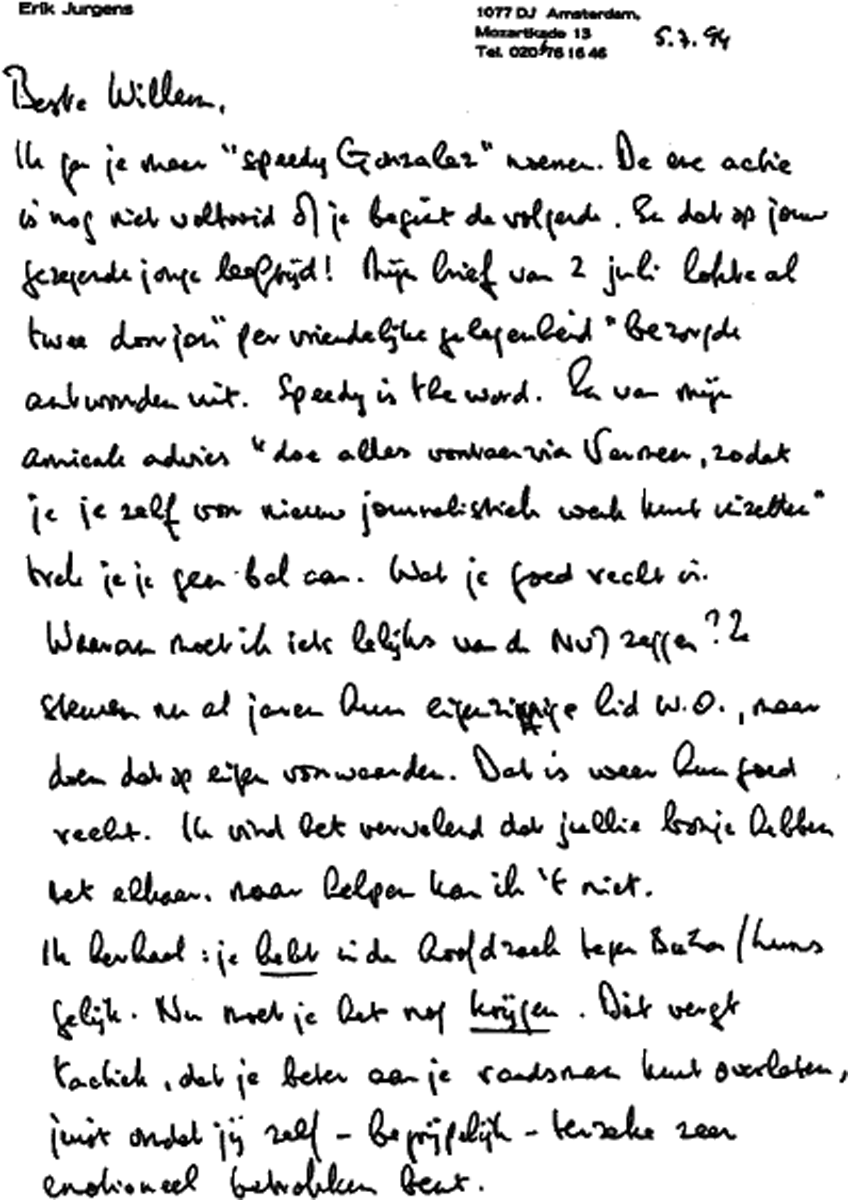 Erik Jurgens
1077 DJ Amsterdam,
Mozartkade 13
Tel. 020/76 16 46
5.7.94
Beste Willem,
Ik ga je maar "speedy Gonzalez" noemen. De ene actie
is nog niet voltooid of je begint de volgende. En dat op jouw
gezegende jonge leeftijd! Mijn brief van 2 juli lokte al
twee door jou "per vriendelijke gelegenheid" bezorgde
antwoorden uit. Speedy is the word. En van mijn
amicale advies "doe alles voortaan via Vermeer, zodat
je je zelf voor nieuw journalistiek werk kunt inzetten"
trek je je geen bal aan. Wat je goed recht is.
Waarom moet ik iets lelijks van de NVJ zeggen? Ze
steunen nu al jaren hun eigenzinnige lid W.O., maar
doen dat op eigen voorwaarden. Dat is weer hun goed
recht. Ik vind het vervelend dat jullie bonje hebben
met elkaar. maar helpen kan ik 't niet.
Ik herhaal: je hebt in de hoofdzaak tegen / 
gelijk. Nu moet je het nog krijgen. Dát vergt
tactiek, dat je beter aan je raadsman kunt overlaten,
juist omdat jij zelf - begrijpelijk - terzake zeer
emotioneel betrokken bent.